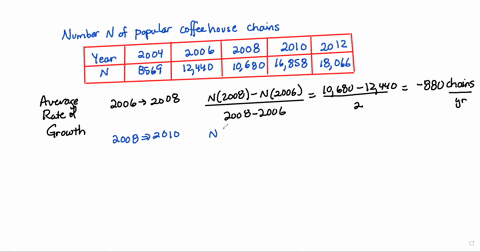 Number N of popular coffeehouse chains
Year 2004 2006 2008 2010 2012
N 8569 12,440 10,680 16,858 18,066
Average Rate of Growth
2006 → 2008 N(2008) - N(2006) / 2008 - 2006 = 10,680 - 12,440 / 2 = -880 chains / yr
2008 ⇒ 2010 N